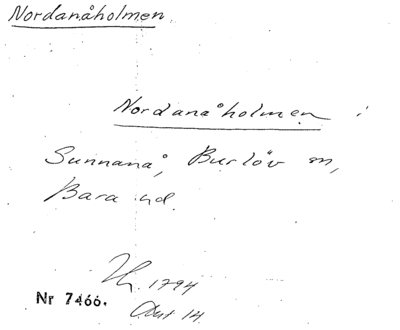 Nordanåholmen
Nordanåholmen i
Sunnanå, Burlöv sn,
Bara hd.
1794
Nr 7466.
Akt 14